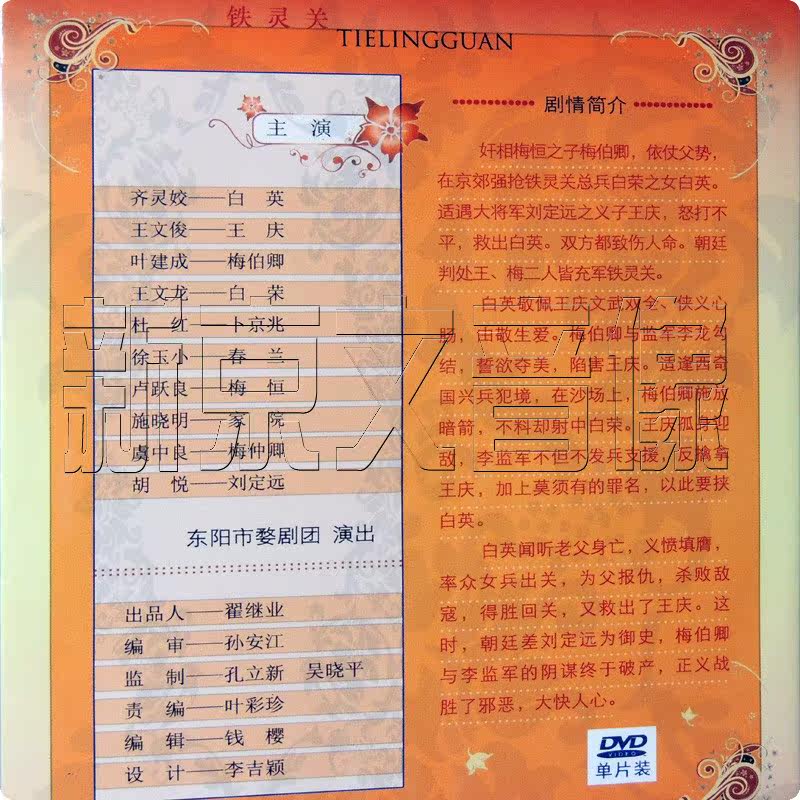 铁灵关
TIELINGGUAN
主 演
齐灵姣——白 英
王文俊——王 庆
叶建成——梅伯卿
王文龙——白 荣
杜 红——卜京兆
徐玉小——春 兰
卢跃良——梅 恒
施晓明——家 院
虞中良——梅仲卿
胡 悦——刘定远
东阳市婺剧团 演出
出品人——翟继业
编 审——孙安江
监 制——孔立新 吴晓平
责 编——叶彩珍
编 辑——钱 樱
设 计——李吉颖
剧情简介
奸相梅恒之子梅伯卿，依仗父势，
在京郊强抢铁灵关总兵白荣之女白英。
适遇大将军刘定远之义子王庆，怒打不
平，救出白英。双方都致伤人命。朝廷
判处王、梅二人皆充军铁灵关。
白英敬佩王庆文武双全、侠义心
肠，由敬生爱。梅伯卿与监军李龙勾
结，誓欲夺美，陷害王庆。适逢西奇
国兴兵犯境，在沙场上，梅伯卿施放
暗箭，不料却射中白荣。王庆孤身迎
敌，李监军不但不发兵支援，反擒拿
王庆，加上莫须有的罪名，以此要挟
白英。
白英闻听老父身亡，义愤填膺，
率众女兵出关，为父报仇，杀败敌
寇，得胜回关，又救出了王庆。这
时，朝廷差刘定远为御史，梅伯卿
与李监军的阴谋终于破产，正义战
胜了邪恶，大快人心。
DVD
VIDEO
单片装
新京文音像